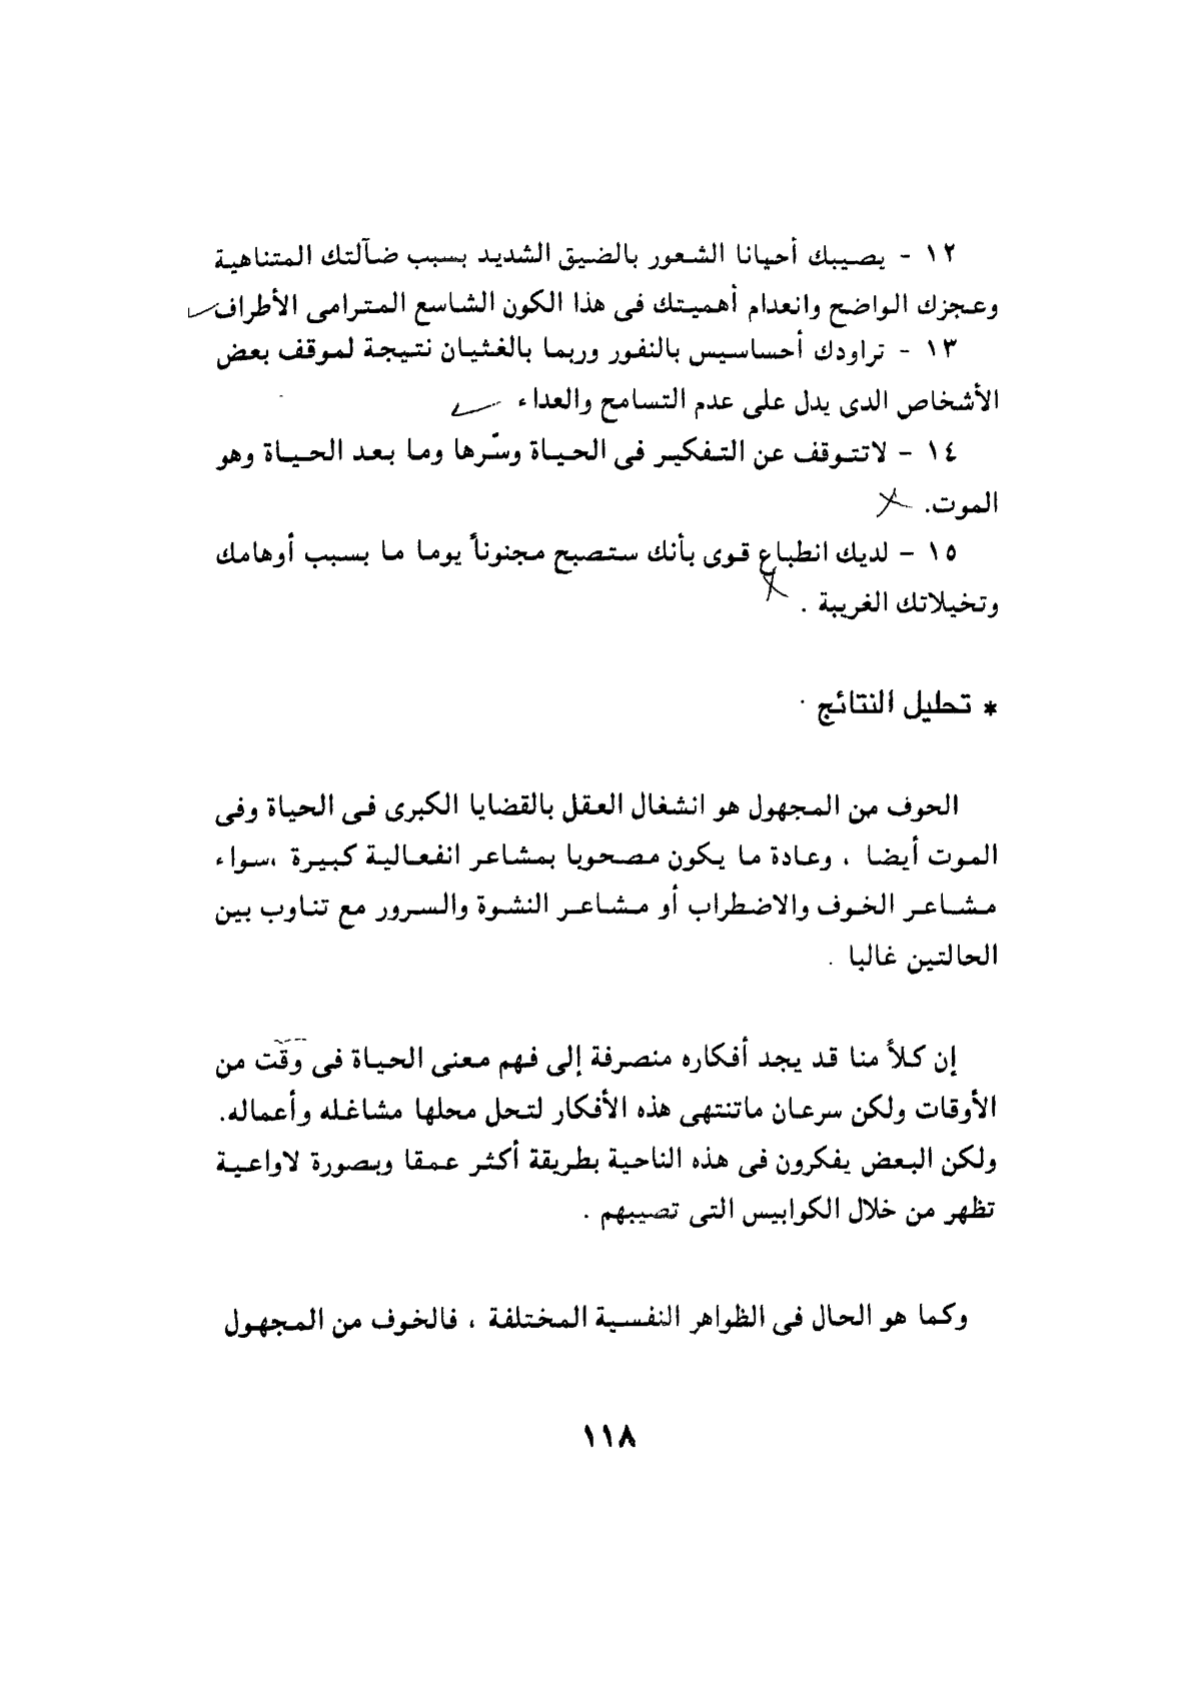 ١٢ - يصيبك أحيانا الشعور بالضيق الشديد بسبب ضآلتك المتناهية
وعجزك الواضح وانعدام أهميتك فى هذا الكون الشاسع المترامى الأطراف
١٣ - تراودك أحساسيس بالنفور وربما بالغثيان نتيجة لموقف بعض
الأشخاص الدى يدل على عدم التسامح والعداء
١٤ - لاتتوقف عن التفكير فى الحياة وسّرها وما بعد الحياة وهو
الموت.
١٥ - لديك انطباع قوى بأنك ستصبح مجنوناً يوما ما بسبب أوهامك
وتخيلاتك الغريبة .
* تحليل النتائج
الحوف من المجهول هو انشغال العقل بالقضايا الكبرى فى الحياة وفى
الموت أيضا ، وعادة ما يكون مصحوبا بمشاعر انفعالية كبيرة ،سواء
مشاعر الخوف والاضطراب أو مشاعر النشوة والسرور مع تناوب بين
الحالتين غالبا .
إن كلاً منا قد يجد أفكاره منصرفة إلى فهم معنى الحياة فى وقت من
الأوقات ولكن سرعان ماتنتهى هذه الأفكار لتحل محلها مشاغله وأعماله.
ولكن البعض يفكرون فى هذه الناحية بطريقة أكثر عمقا وبصورة لاواعية
تظهر من خلال الكوابيس التى تصيبهم .
وكما هو الحال فى الظواهر النفسية المختلفة ، فالخوف من المجهول
١١٨